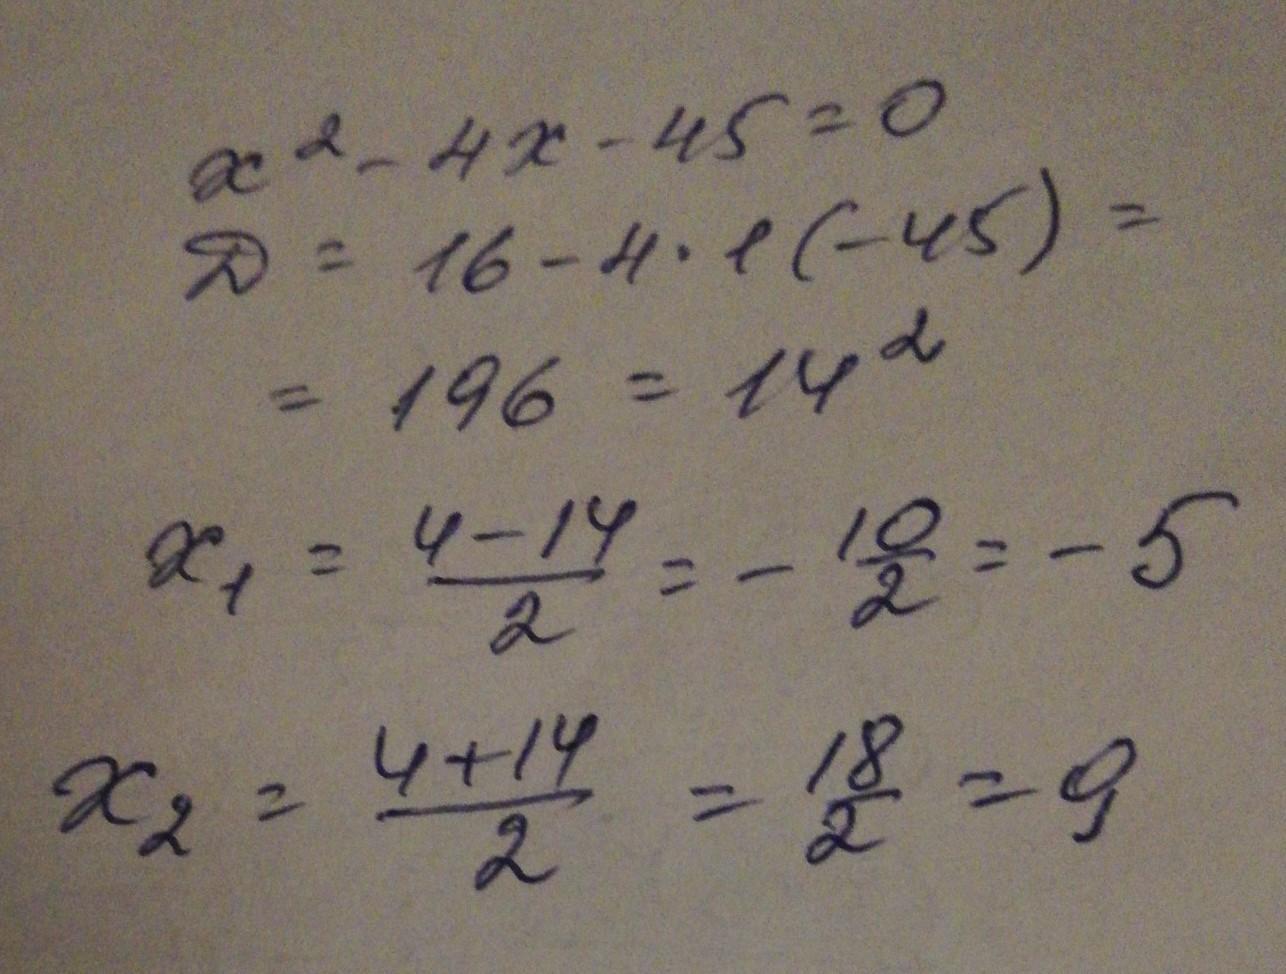 x² - 4x - 45 = 0
Д = 16 - 4 · 1 (-45) =
= 196 = 14²
x₁ = (4 - 14)/2 = - 10/2 = - 5
x₂ = (4 + 14)/2 = 18/2 = 9